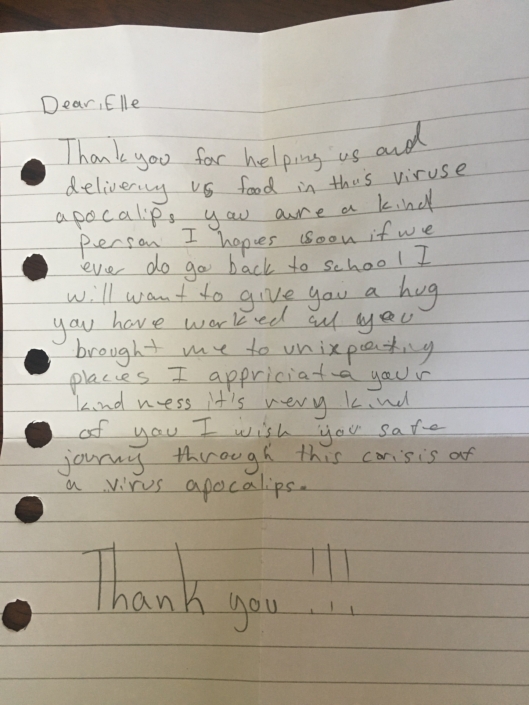 Dear, Elle
Thank you for helping us and
delivering us food in this viruse
apocalips you are a kind
person I hopes soon if we
ever do go back to school I
will want to give you a hug
you have worked all year
brought me to unixpecting
places I appriciate your
kindness it's very kind
of you I wish you safe
journy through this corisis of
a virus apocalips.
Thank you !!!